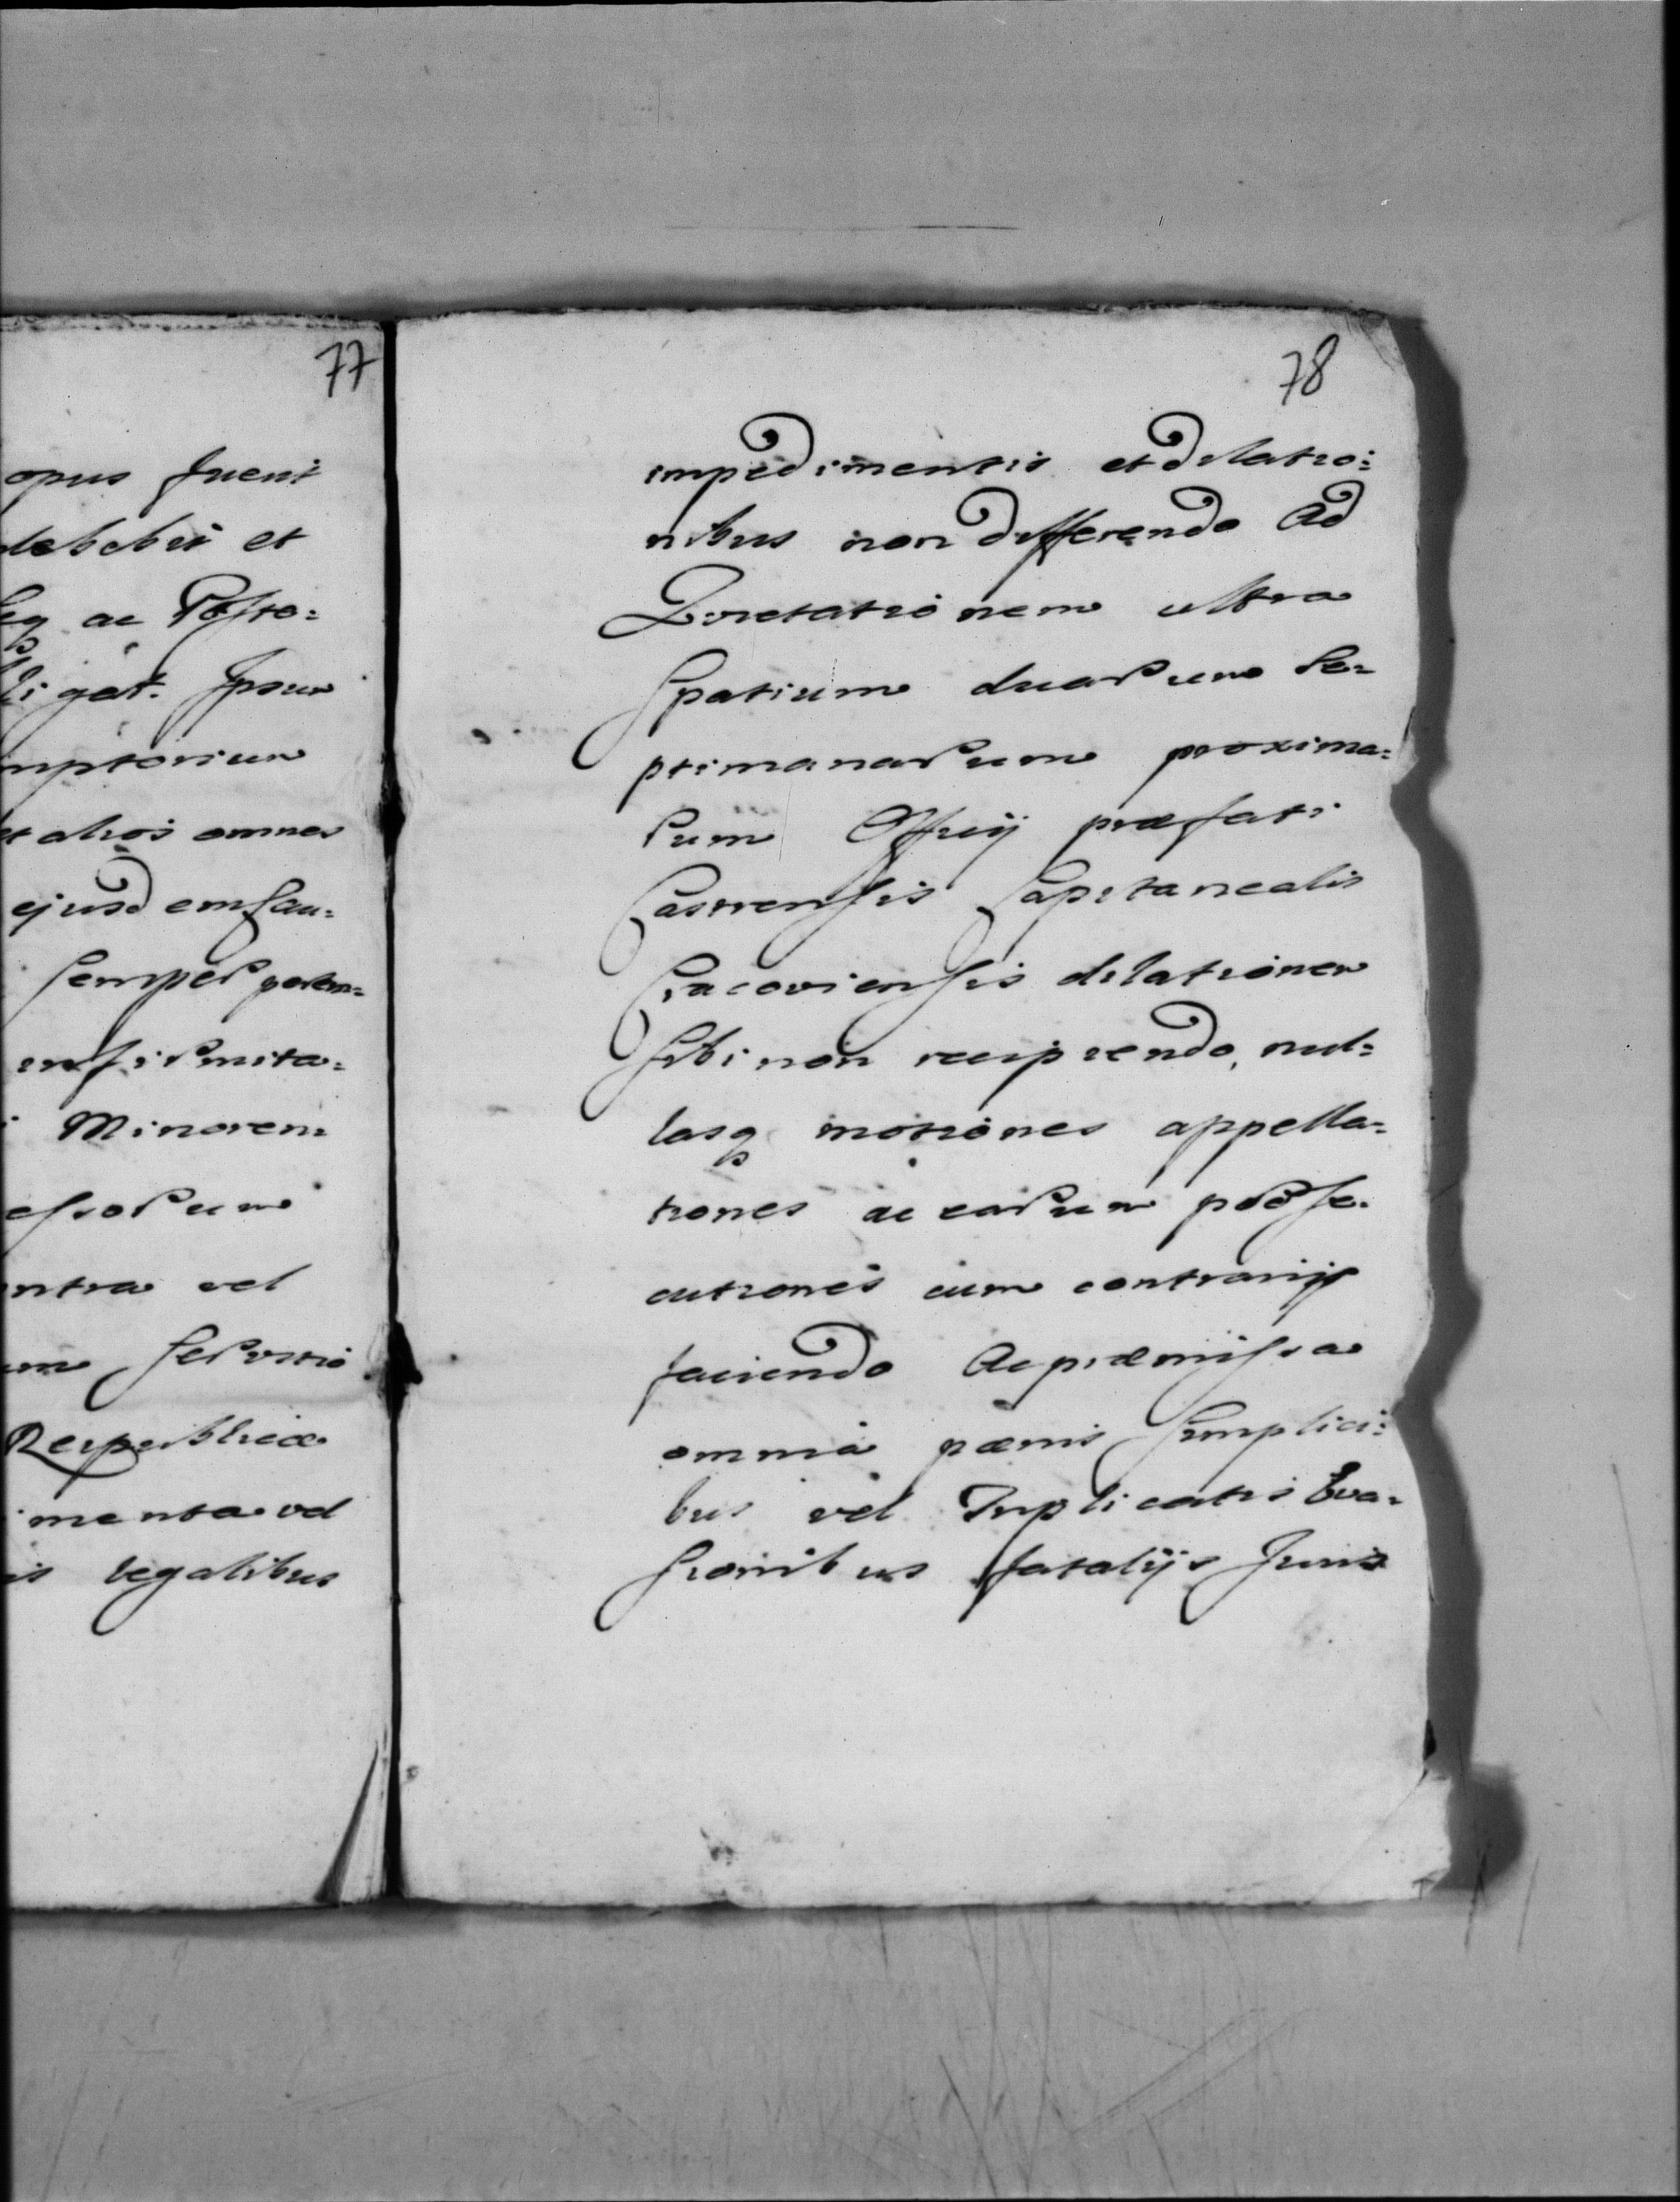 77
opus fuerit
debebit et
seq ac Posto=
ligat. Ipsum
mptorium
et alios omnes
ejusdem Cau=
semper poten=
infirmita=
Minorem
essorum
ntra vel
servitio
Reipublicæ
menta vel
is legalibus
78
impedimentis et dilatio=
nibus non differendo Ad
Porectationem ultra
Spatium duarum Se=
ptimanarum proxima=
rum Officij præfati
Castrensis Capitanealis
Cracoviensis dilationem
sibi non recipiendo, nul=
lasq motiones appella=
tiones ac earum prose=
cutiones cum contrarijs
faciendo Ac præmissa
omnia pænis simplici=
bus vel Triplicatis Eva=
sionibus fatalijs Juris